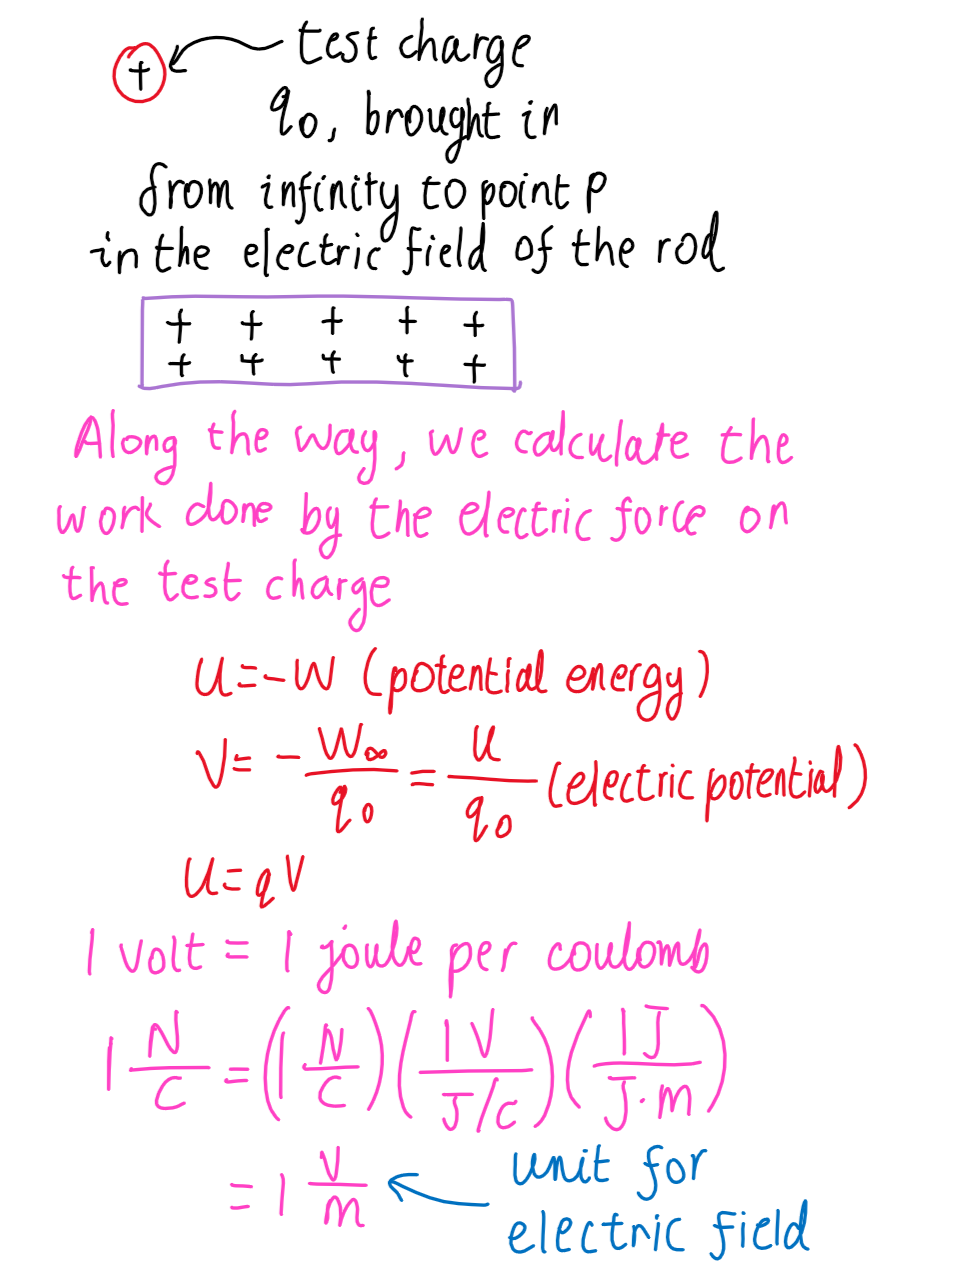 + test charge
q₀, brought in
from infinity to point P
in the electric field of the rod
+ + + + +
+ + + + +
Along the way, we calculate the
work done by the electric force on
the test charge
U = -W (potential energy)
V = - W∞/q₀ = U/q₀ (electric potential)
U = qV
1 volt = 1 joule per coulomb
1 N/C = (1 N/C)(1 V/J/C)(1 J/J·m)
= 1 V/m unit for
electric field